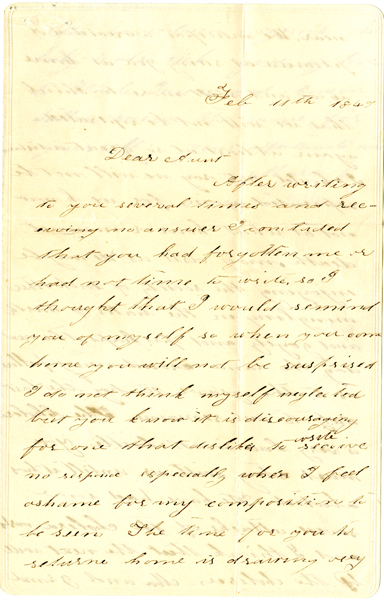 Feb 11th 184
Dear Aunt
After writing
to you several times and rec-
eiving no answer I concluded
that you had forgotten me or
had not time to write, so I
thought that I would remind
you of myself so when you com
home you will not be suprised
I do not think myself neglected
but you know it is discouraging
for one that dislike to write receive
no respnse especially when I feel
ashame for my composition to
be seen The time for you to
returne home is drawing very